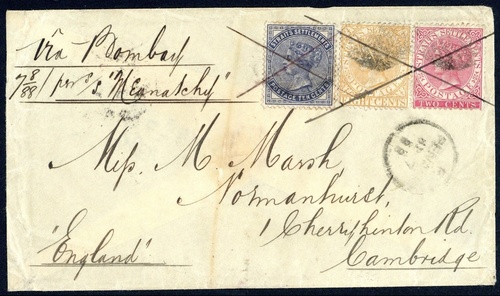 via Bombay
7/8/88 / per s.s. "Meanatchy"
STRAITS SETTLEMENTS
POSTAGE TEN CENTS
EIGHT CENTS
STRAITS SETTLEMENTS
POSTAGE
TWO CENTS
Miss M Marsh
Normanhurst,
1 Cherryhinton Rd.
Cambridge
"England"